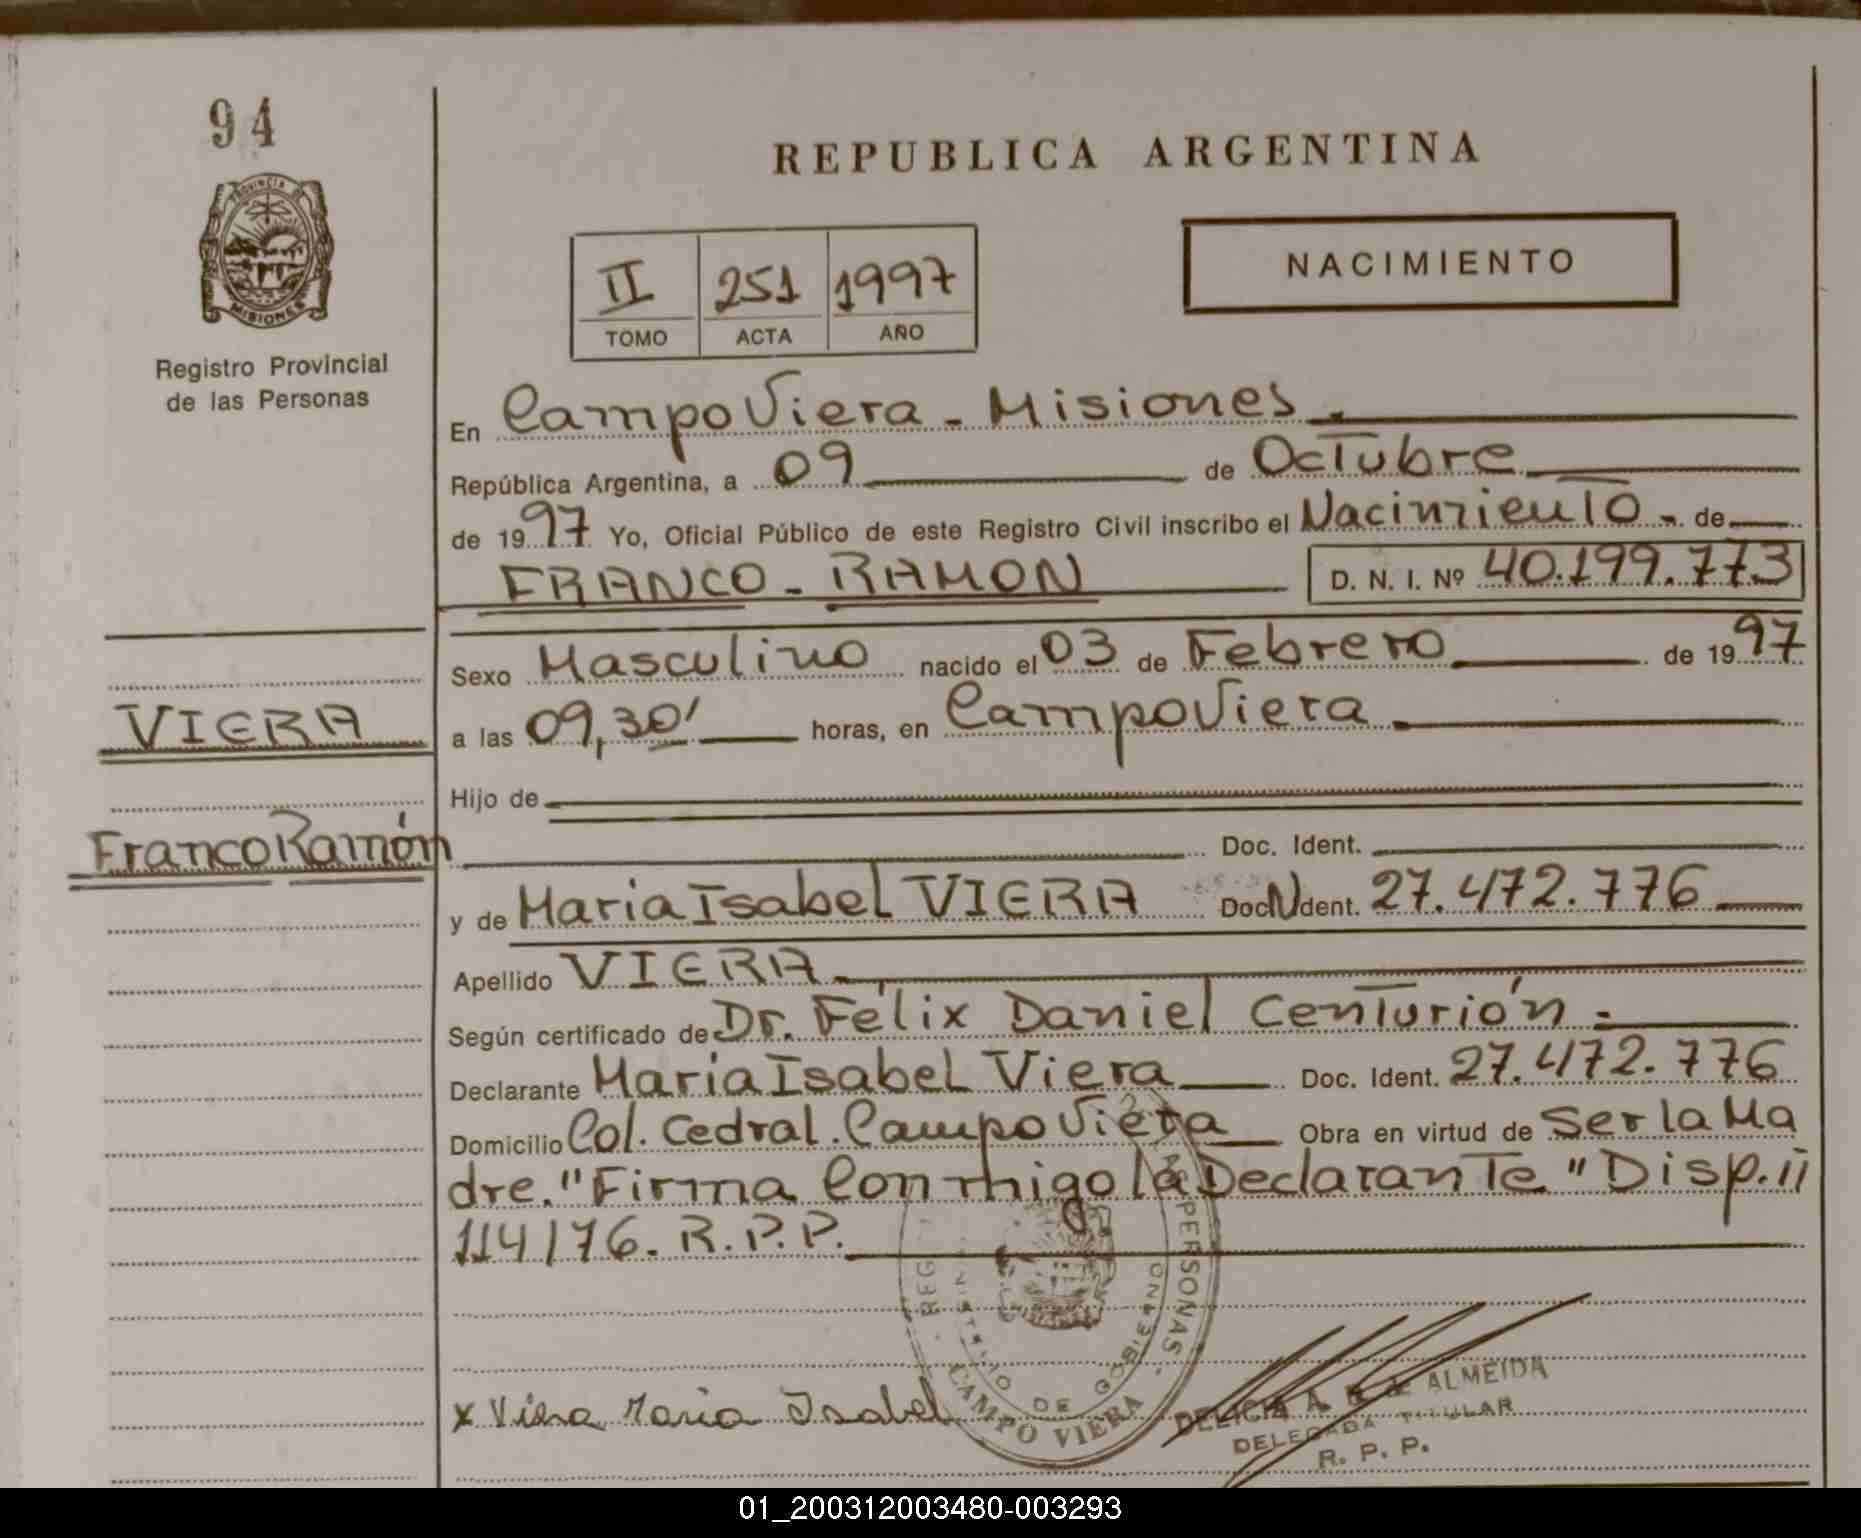 94
REPUBLICA ARGENTINA
PROVINCIA D
MISIONES
Registro Provincial
de las Personas
II 251 1997
TOMO ACTA AÑO
NACIMIENTO
En Campo Viera - Misiones.
República Argentina, a 09 de Octubre
de 1997 Yo, Oficial Público de este Registro Civil inscribo el Nacimiento - de
FRANCO - RAMON D. N. I. Nº 40.199.773
Sexo Masculino nacido el 03 de Febrero de 1997
VIERA
a las 09,30' horas, en Campo Viera
Hijo de
Franco Ramón
Doc. Ident.
y de Maria Isabel VIERA Doc N dent. 27.472.776
Apellido VIERA
Según certificado de Dr. Félix Daniel Centurión.
Declarante Maria Isabel Viera Doc. Ident. 27.472.776
Domicilio Col. Cedral. Campo Viera Obra en virtud de Ser la Ma
dre. "Firma Conmigo la Declarante" Disp. 11
114/76. R.P.P.
REG PERSONAS
MINISTERIO DE GOBIERNO
CAMPO VIERA
x Viera Maria Isabel
DELICIA A. ALMEIDA
DELEGADA TITULAR
R. P. P.
01_200312003480-003293